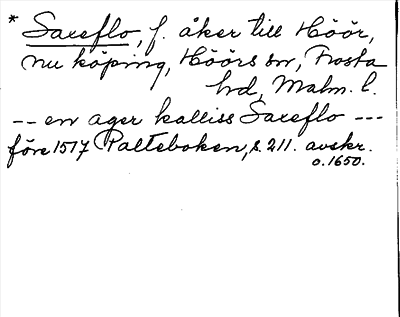 * Saxeflo, f. åker till Höör,
nu köping, Höörs sn, Frosta
hd, Malm. l.
-- en ager kalliss Saxeflo ---
före 1517 Palteboken, s. 211. avskr.
o. 1650.